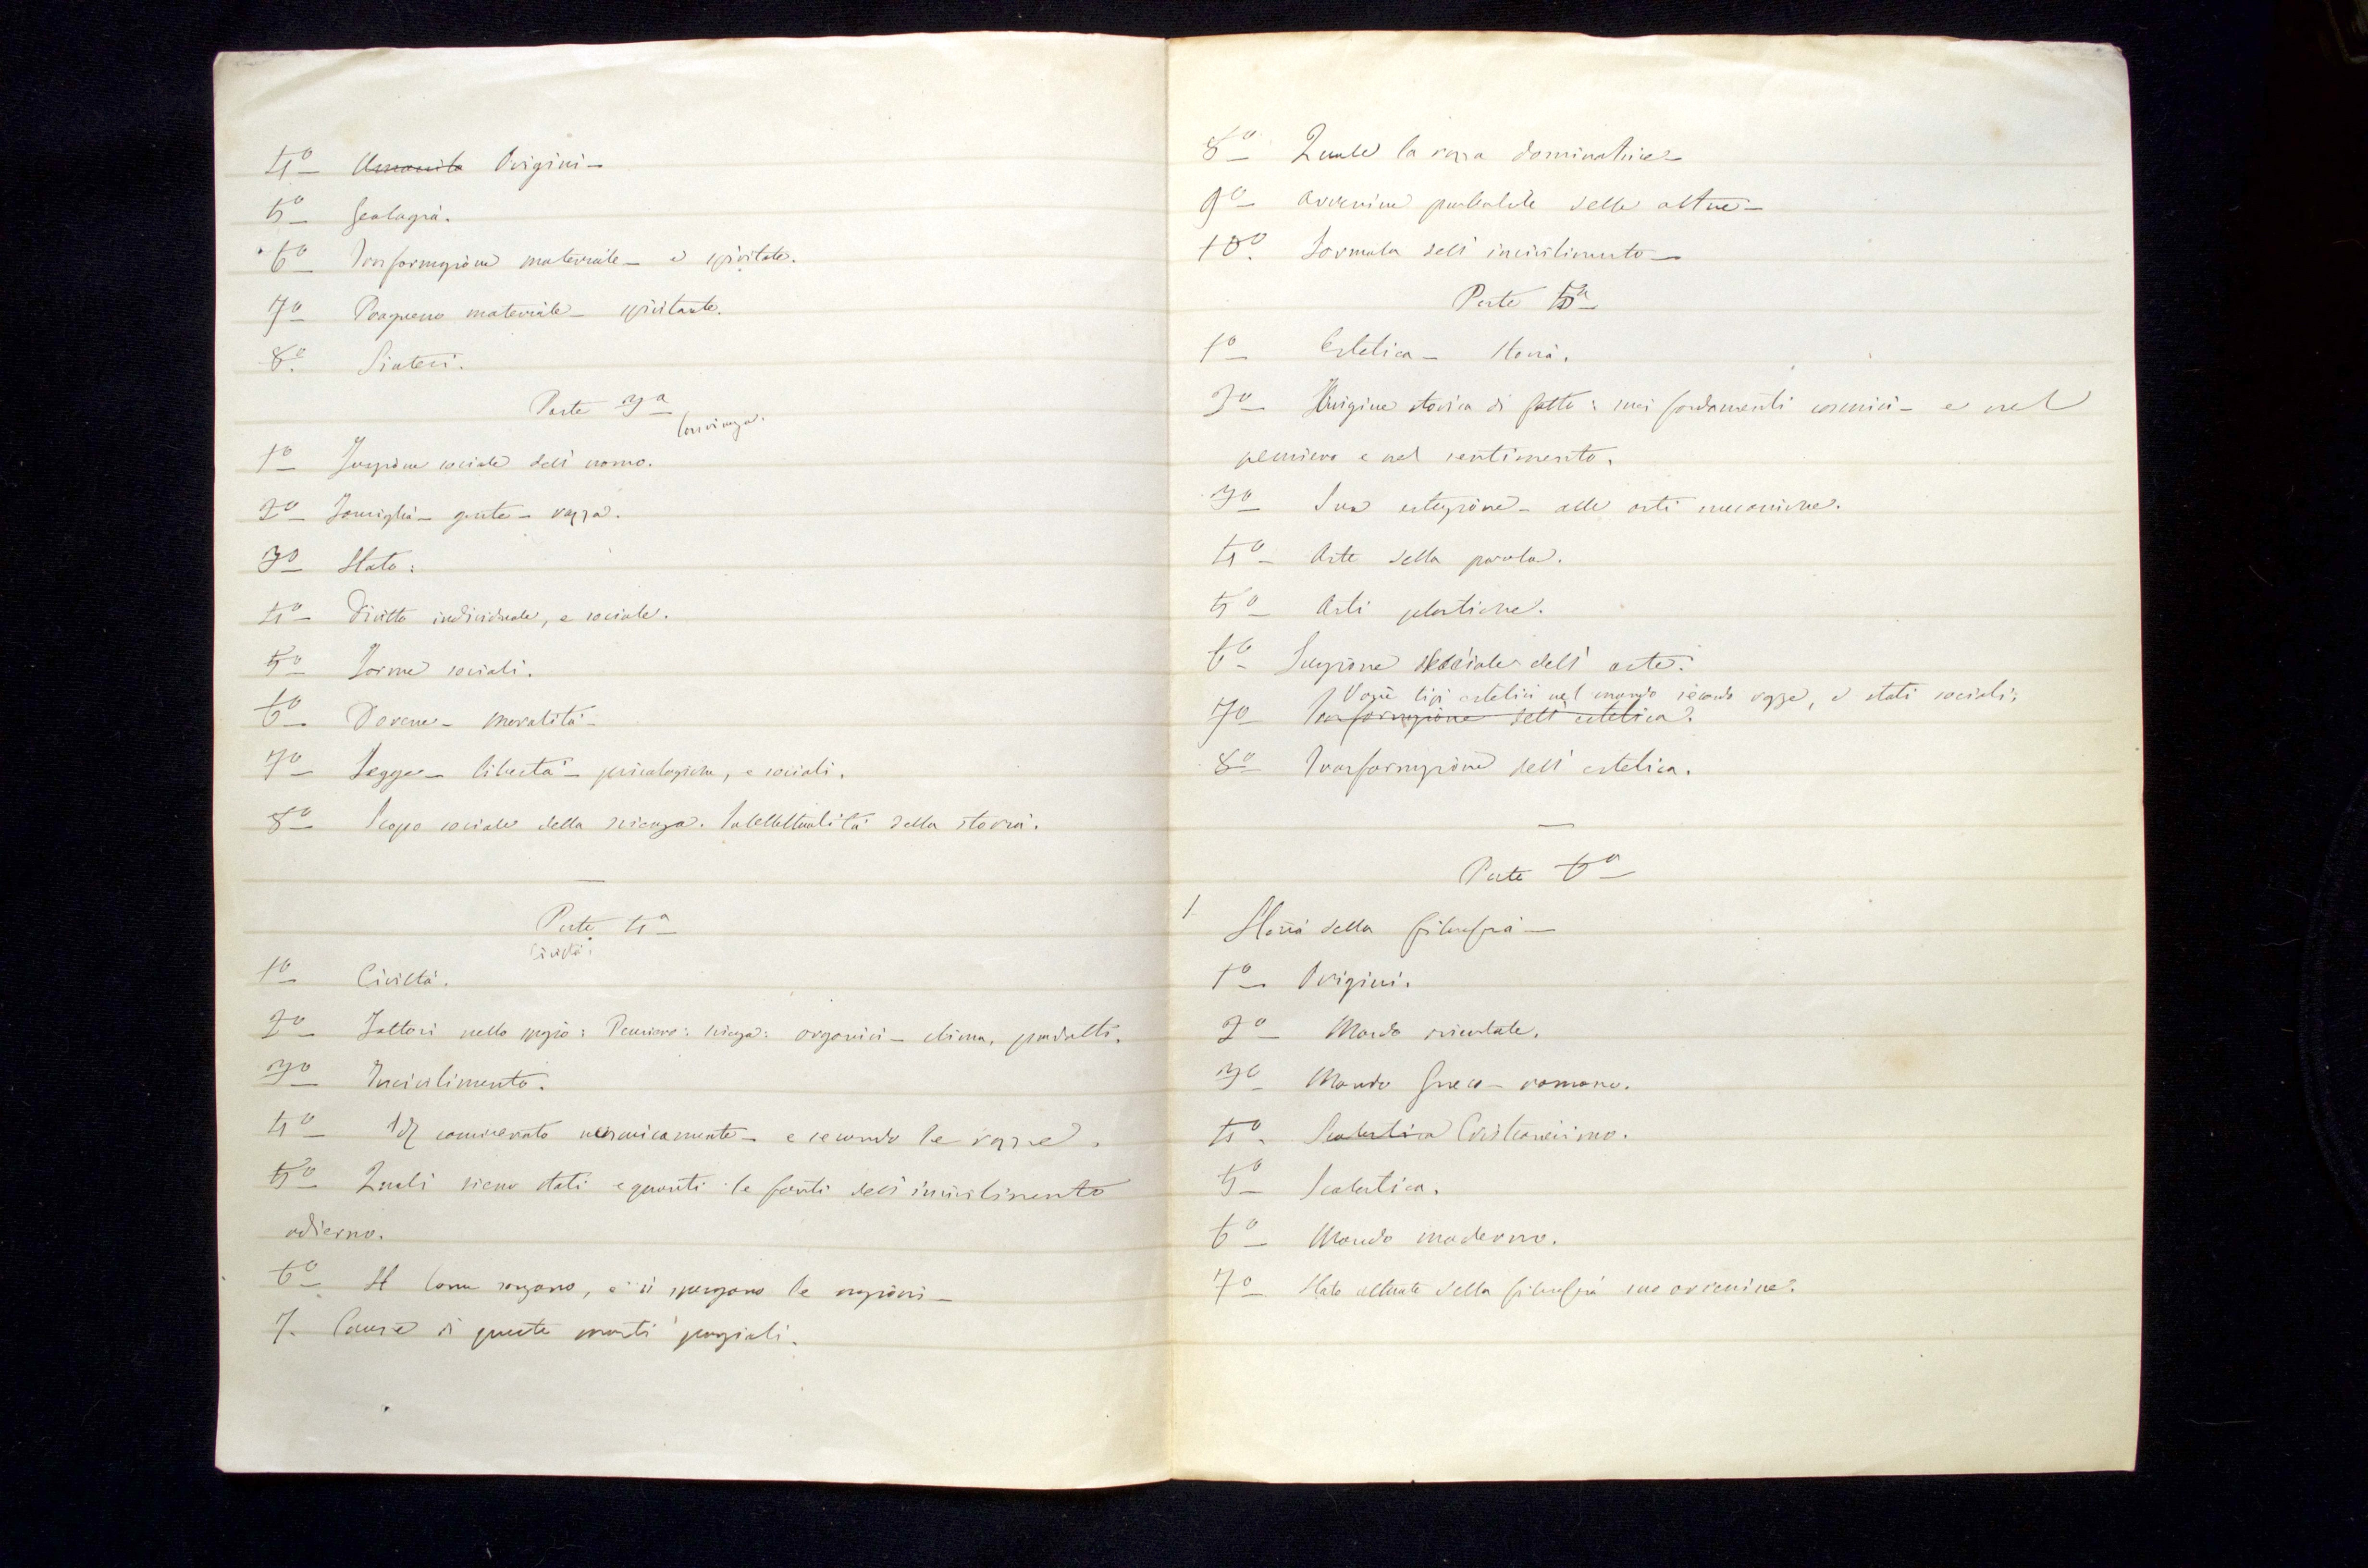 4º Origini_
5º Geologia.
6º Trasformazione materiale_ e spiritale.
7º Progresso materiale_ spiritale.
8º Sintesi.
Parte 3ª
1º Funzione sociale dell' uomo.
2º Famiglia_ gente_ razza.
3º Stato:
4º Diritto individuale, e sociale.
5º Forme sociali.
6º Dovere_ moralità_
7º Legge_ libertà_ psicologiche, e sociali.
8º Scopo sociale della scienza. Intellettualità della storia.
Parte 4ª
Civiltà:
1º Civiltà.
2º Fattori nello spazio: Pensiero: scienza: organici_ clima, prodotti.
3º Incivilimento.
4º considerato cosmicamente_ e secondo le razze.
5º Quali sieno stati e quanti le fonti dell' incivilimento
odierno.
6º Come sorgono, e si spengono le nazioni_
7. Cause di queste morti parziali.
8º Quale la razza dominatrice_
9º Avvenire probabile delle altre_
10º. Formula dell' incivilimento_
Parte 5ª
1º Estetica_ Storia.
2º Origine storica di fatto: suoi fondamenti cosmici_ e nel
pensiero e nel sentimento.
3º Sua estensione_ alle arti meccaniche.
4º Arte della parola.
5º Arti plastiche.
6º Funzione sociale dell' arte.
Varie tipi estetici nel mondo secondo razze, e stati sociali:
7º Trasformazione dell' estetica.
8º Trasformazione dell' estetica.
Parte 6ª
1 Storia della filosofia_
1º Origini.
2º Mondo orientale.
3º Mondo Greco_ romano.
4º. Scolastica Cristianesimo.
5º Scolastica.
6º Mondo moderno.
7º Stato attuale della filosofia suo avvenire.